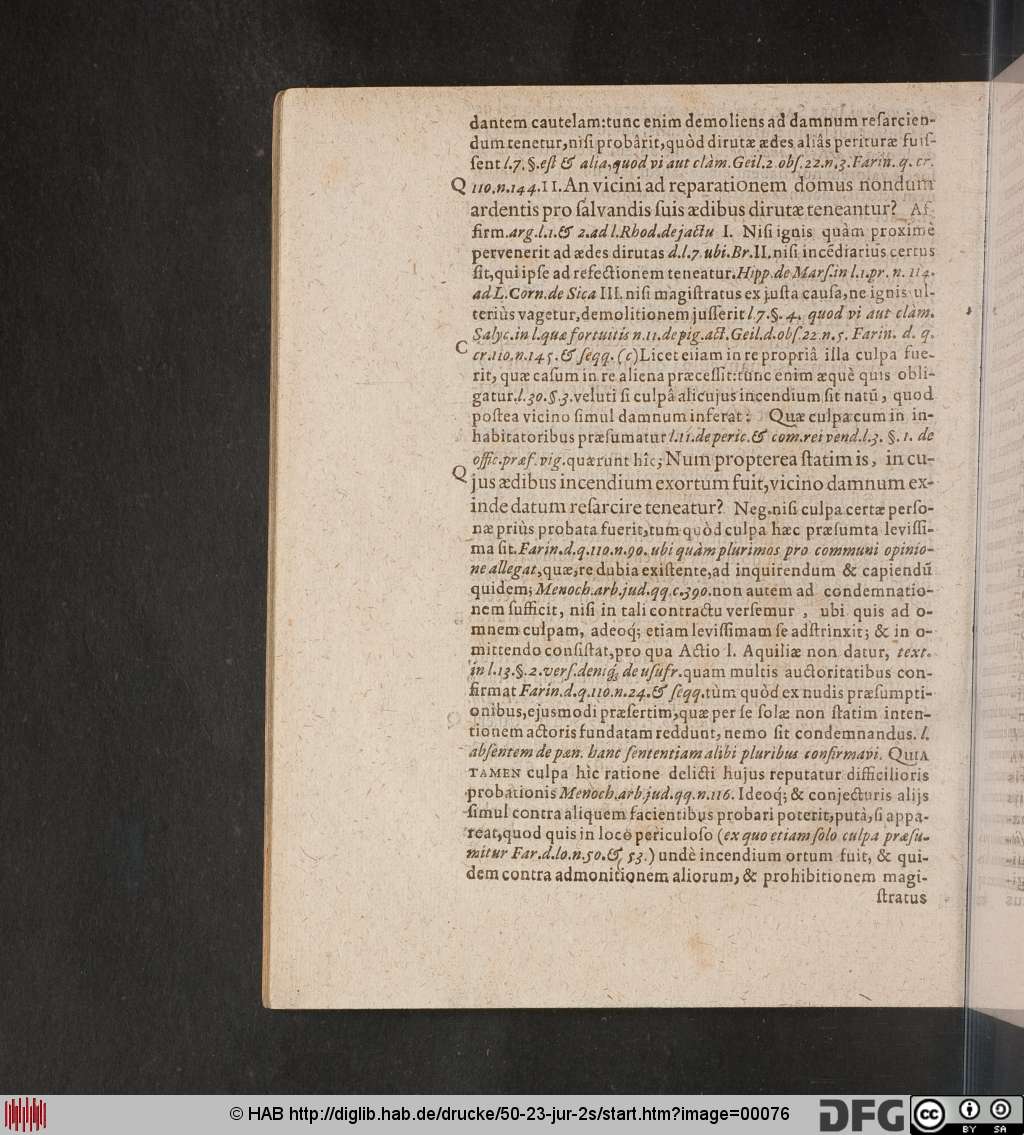 dantem cautelam: tunc enim demoliens ad damnum reſarcien-
dum tenetur, niſi probârit, quòd dirutæ ædes aliâs perituræ fuiſ-
ſent l. 7. §. eſt & alia, quod vi aut clàm. Geil. 2 obſ. 22. n. 3. Farin. q. cr.
Q 110. n. 144. II. An vicini ad reparationem domus nondum
ardentis pro ſalvandis ſuis ædibus dirutæ teneantur? Af-
firm. arg. l. 1. & 2. ad l. Rhod. de jactu I. Niſi ignis quàm proximè
pervenerit ad ædes dirutas d. l. 7. ubi. Br. II. niſi incẽdiarius certus
ſit, qui ipſe ad refectionem teneatur. Hipp. de Marſ. in l. 1. pr. n. 114.
ad L. Corn. de Sica III. niſi magiſtratus ex juſta cauſa, ne ignis ul-
teriùs vagetur, demolitionem juſſerit l. 7. §. 4. quod vi aut clàm.
Salyc. in l. quæ fortuitis n. 11. de pig. act. Geil. d. obſ. 22. n. 5. Farin. d. q.
C cr. 110. n. 145. & ſeqq. (c) Licet etiam in re propriâ illa culpa fue-
rit, quæ caſum in re aliena præceſſit: tunc enim æquè quis obli-
gatur. l. 30. §. 3. veluti ſi culpâ alicujus incendium ſit natũ, quod
poſtea vicino ſimul damnum inferat: Quæ culpa cum in in-
habitatoribus præſumatur l. 11. de peric. & com. rei vend. l. 3. §. 1. de
offic. præf. vig. quærunt hîc; Num propterea ſtatim is, in cu-
Q jus ædibus incendium exortum fuit, vicino damnum ex-
inde datum reſarcire teneatur? Neg. niſi culpa certæ perſo-
næ priùs probata fuerit, tum quòd culpa hæc præſumta leviſſi-
ma ſit. Farin. d. q. 110. n. 90. ubi quàm plurimos pro communi opinio-
ne allegat, quæ, re dubia exiſtente, ad inquirendum & capiendũ
quidem; Menoch. arb. jud. qq. c. 390. non autem ad condemnatio-
nem ſufficit, niſi in tali contractu verſemur, ubi quis ad o-
mnem culpam, adeoq́; etiam leviſſimam ſe adſtrinxit; & in o-
mittendo conſiſtat, pro qua Actio l. Aquiliæ non datur, text.
in l. 13. §. 2. verſ. deniq́; de uſufr. quam multis auctoritatibus con-
firmat Farin. d. q. 110. n. 24. & ſeqq. tùm quòd ex nudis præſumpti-
onibus, ejusmodi præſertim, quæ per ſe ſolæ non ſtatim inten-
tionem actoris fundatam reddunt, nemo ſit condemnandus. l.
abſentem de pœn. hanc ſententiam alibi pluribus confirmavi. Quia
tamen culpa hìc ratione delicti hujus reputatur difficilioris
probationis Menoch. arb. jud. qq. n. 116. Ideoq́; & conjecturis alijs
ſimul contra aliquem facientibus probari poterit, putà, ſi appa-
reat, quod quis in loco periculoſo (ex quo etiam ſolo culpa præſu-
mitur Far. d. lo. n. 50. & 53.) undè incendium ortum fuit, & qui-
dem contra admonitionem aliorum, & prohibitionem magi-
ſtratus
© HAB http://diglib.hab.de/drucke/50-23-jur-2s/start.htm?image=00076
DFG
cc BY SA